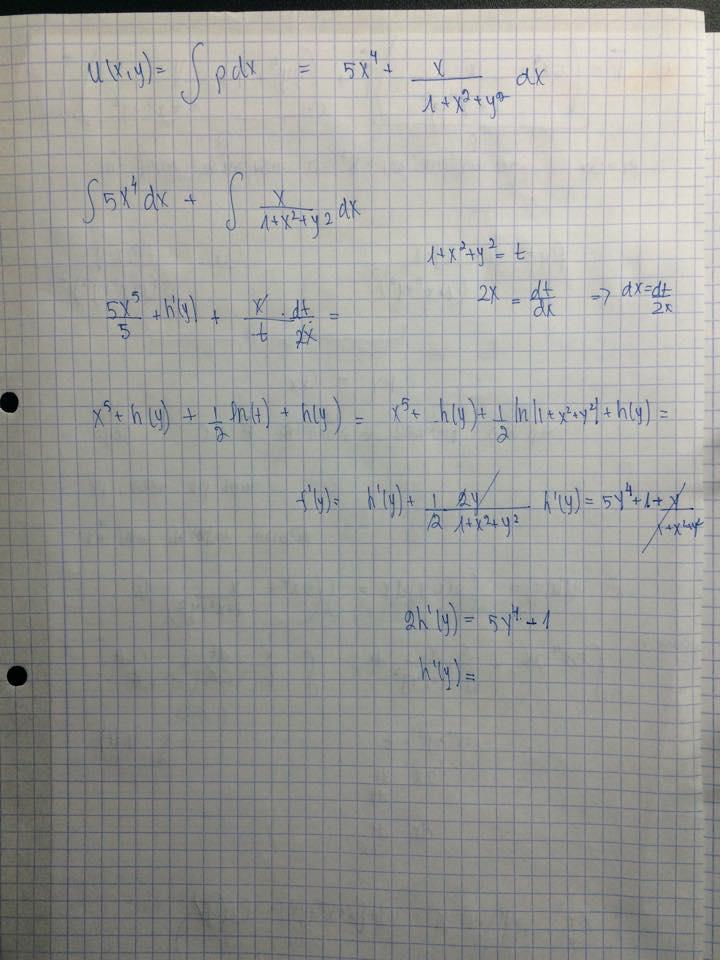 U(x,y) = ∫ p dx = 5x⁴ + x/(1+x²+y²) dx
∫ 5x⁴ dx + ∫ x/(1+x²+y²) dx
1+x²+y² = t
2x = dt/dx => dx = dt/2x
5x⁵/5 + h'(y) + x/t · dt/2x =
x⁵ + h(y) + 1/2 ln(t) + h(y) = x⁵ + h(y) + 1/2 ln|1+x²+y²| + h(y) =
f'(y) = h'(y) + 1/2 2y/(1+x²+y²) h'(y) = 5y⁴ + 1 + y/(1+x²+y²)
2h'(y) = 5y⁴ + 1
h'(y) =